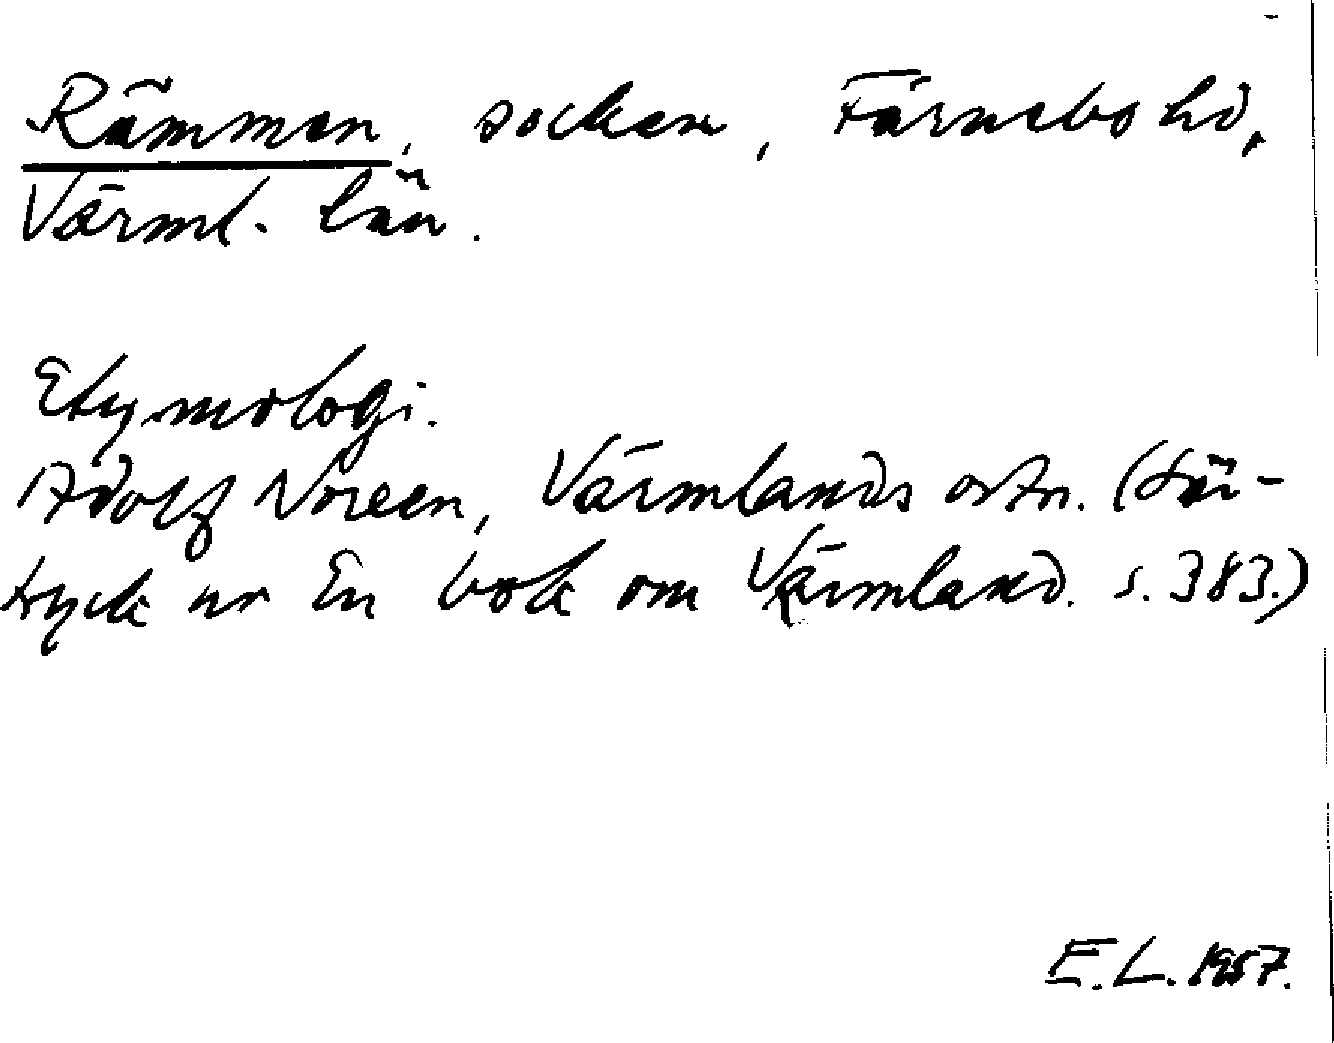 Rämmen, socken, Färnebo hd,
Värml. län.
Etymologi.
Adolf Noreen, Värmlands ortn. (Sär-
tryck ur En bok om Värmland. s. 383.)
E.L. 1957.